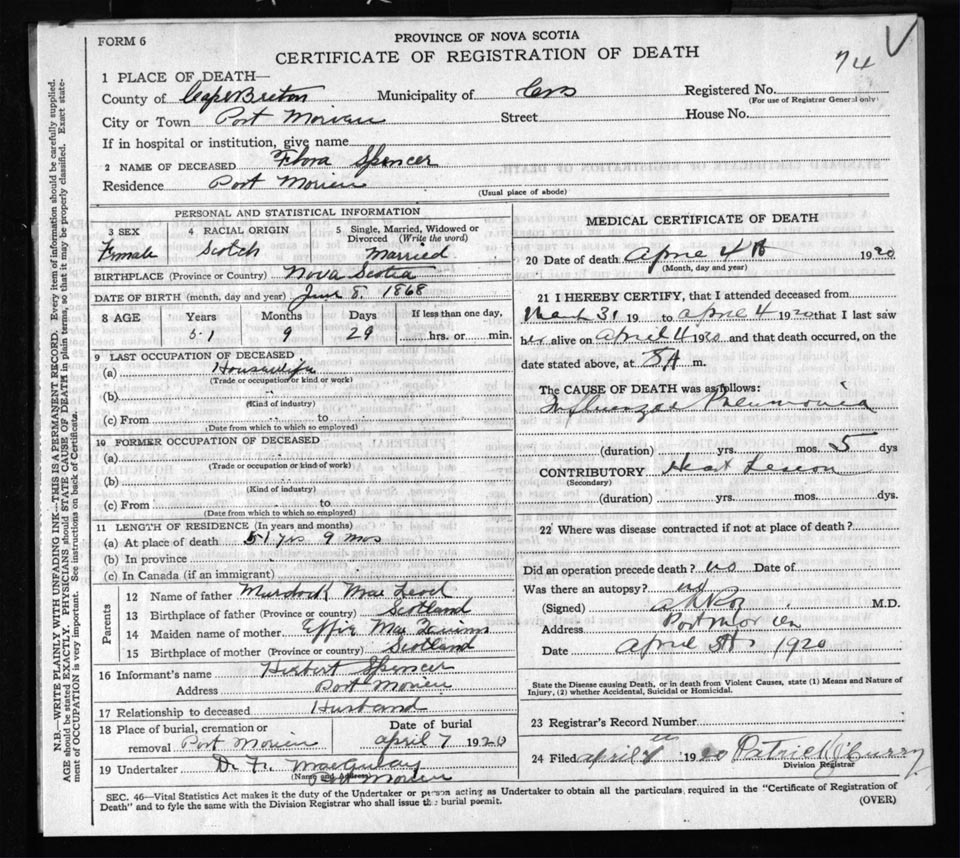 FORM 6
PROVINCE OF NOVA SCOTIA
CERTIFICATE OF REGISTRATION OF DEATH
74
1 PLACE OF DEATH—
County of Cape Breton Municipality of Registered No.
(For use of Registrar General only)
City or Town Port Morien Street House No.
If in hospital or institution, give name
2 NAME OF DECEASED Flora Spencer
Residence Port Morien
(Usual place of abode)
PERSONAL AND STATISTICAL INFORMATION
3 SEX 4 RACIAL ORIGIN 5 Single, Married, Widowed or Divorced (Write the word)
Female Scotch Married
BIRTHPLACE (Province or Country) Nova Scotia
DATE OF BIRTH (month, day and year) June 8. 1868
8 AGE Years Months Days If less than one day,
51 9 29 hrs. or min.
9 LAST OCCUPATION OF DECEASED
(a) Housewife
(Trade or occupation or kind or work)
(b)
(Kind of industry)
(c) From to
(Date from which to which so employed)
10 FORMER OCCUPATION OF DECEASED
(a)
(Trade or occupation or kind of work)
(b)
(Kind of industry)
(c) From to
(Date from which to which so employed)
11 LENGTH OF RESIDENCE (In years and months)
(a) At place of death 51 yrs 9 mos
(b) In province
(c) In Canada (if an immigrant)
Parents
12 Name of father Murdock Mac Leod
13 Birthplace of father (Province or country) Scotland
14 Maiden name of mother Effie Mac
15 Birthplace of mother (Province or country) Scotland
16 Informant's name Herbert Spencer
Address Port Morien
17 Relationship to deceased Husband
18 Place of burial, cremation or removal Port Morien
Date of burial april 7 1920
19 Undertaker
(Name and address)
Port Morien
MEDICAL CERTIFICATE OF DEATH
20 Date of death April 4th 1920
(Month, day and year)
21 I HEREBY CERTIFY, that I attended deceased from
March 31 19 to april 4 1920 that I last saw
her alive on april 4 1920 and that death occurred, on the
date stated above, at 8A m.
The CAUSE OF DEATH was as follows:
Influenza Pneumonia
(duration) yrs. mos. 5 dys
CONTRIBUTORY Heart Lesion
(Secondary)
(duration) yrs. mos. dys.
22 Where was disease contracted if not at place of death?
Did an operation precede death? no Date of
Was there an autopsy? no
(Signed) M.D.
Address Port Morien
Date april 5th 1920
State the Disease causing Death, or in death from Violent Causes, state (1) Means and Nature of
Injury, (2) whether Accidental, Suicidal or Homicidal.
23 Registrar's Record Number
24 Filed april 1920 Patrick J Curry
Division Registrar
SEC. 46—Vital Statistics Act makes it the duty of the Undertaker or person acting as Undertaker to obtain all the particulars required in the "Certificate of Registration of
Death" and to fyle the same with the Division Registrar who shall issue the burial permit.
(OVER)
N.B.—WRITE PLAINLY WITH UNFADING INK—THIS IS A PERMANENT RECORD. Every item of information should be carefully supplied.
AGE should be stated EXACTLY. PHYSICIANS should STATE CAUSE OF DEATH in plain terms, so that it may be properly classified. Exact state-
ment of OCCUPATION is very important. See instructions on back of Certificate.